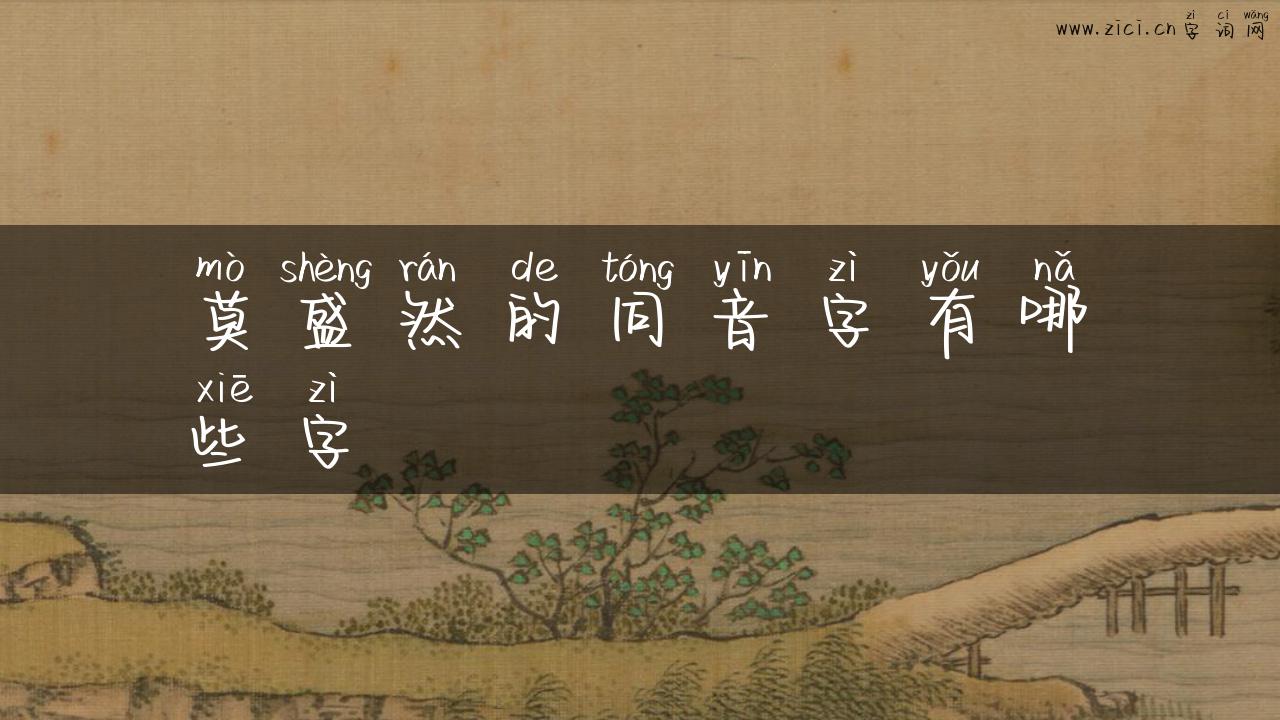 zì cí wǎng
www.zici.cn 字词网
mò shèng rán de tóng yīn zì yǒu nǎ
莫盛然的同音字有哪
xiē zì
些字